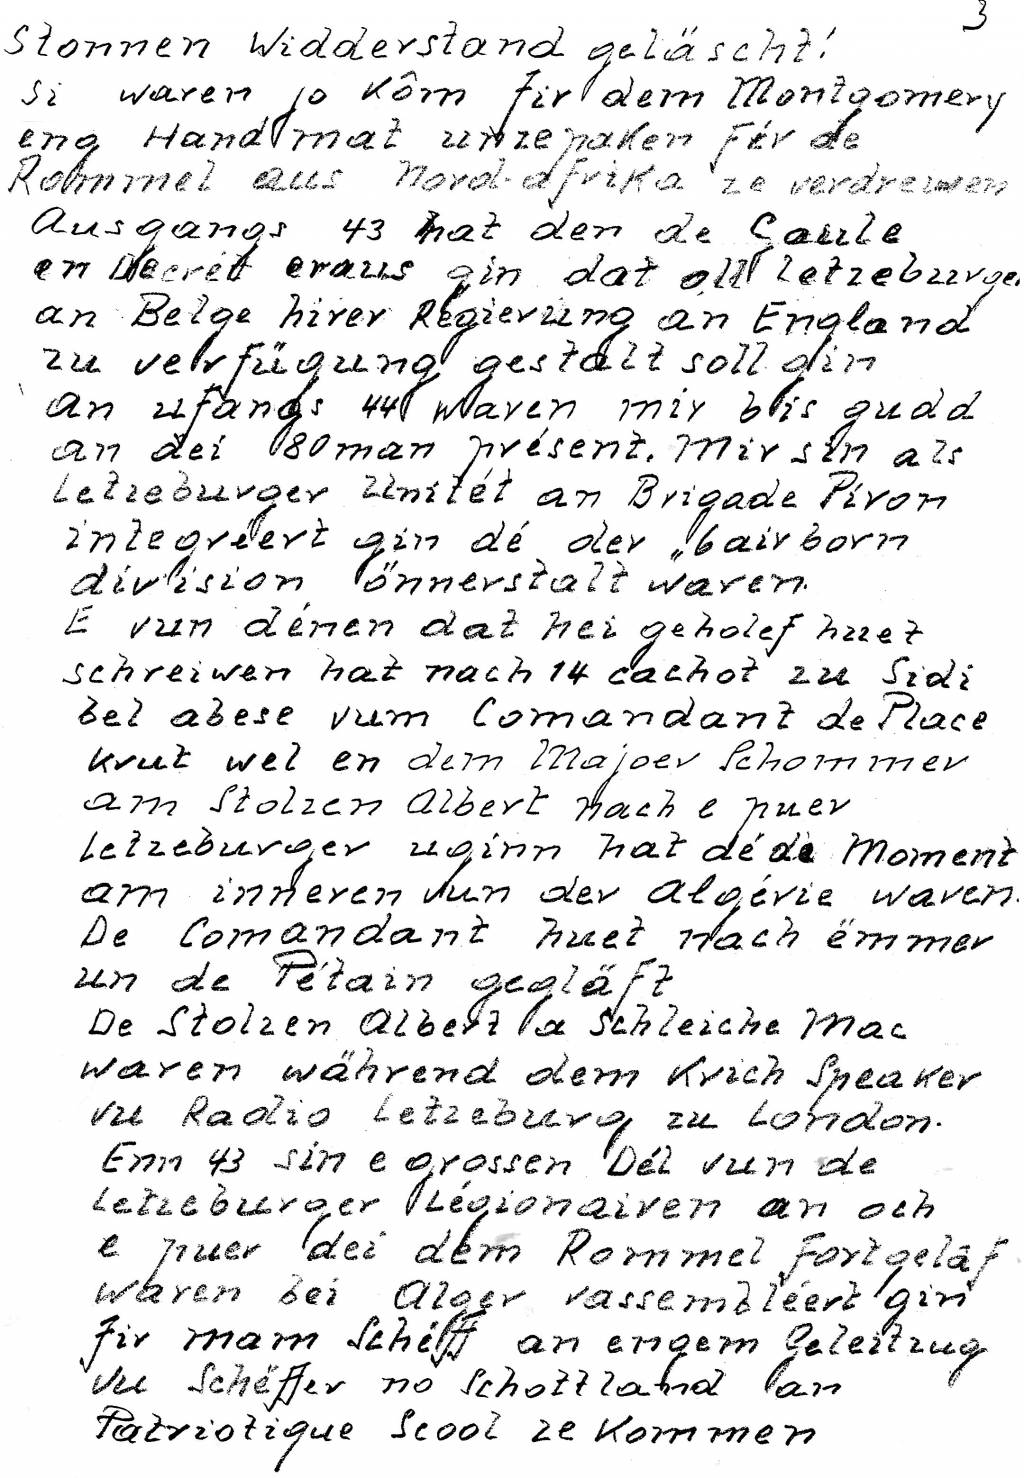 3
Stonnen Widderstand geläscht!
Si waren jo Kôm fir dem Montgomery
eng Hand mat unzepaken fér de
Rommel aus Nord-afrika ze verdreiwen
Ausgangs 43 hat den de Gaule
en Decrét eraus gin dat oll Letzeburger
an Belge hirer Regierung an England
zu verfügung gestallt soll gin
An ufangs 44 waren mir bis gudd
an dei 80 man présent. Mir sin als
Letzeburger Unitét an Brigade Piron
integréert gin dé der „bairborn
division önnerstallt waren.
E vun dénen dat hei geholef huet
schreiwen hat nach 14 cachot zu Sidi
bel abese vum Comandant de Place
krut wel en dem Majoer Schommer
am Stolzen Albert nach e puer
Letzeburger uginn hat dé de Moment
am inneren vun der Algérie waren.
De Comandant huet nach ëmmer
un de Pétain gegläft
De Stolzen Albert a Schleiche Mac
waren während dem Krich Speaker
vu Radio Letzeburg zu London.
Enn 43 sin e grossen Dél vun de
Letzeburger Légionairen an och
e puer dei dem Rommel fortgeläf
waren bei Alger rassembléert gin
fir mam Schéff an engem Geleitzug
vu Schëffer no Schottland an
Patriotique Scool ze kommen